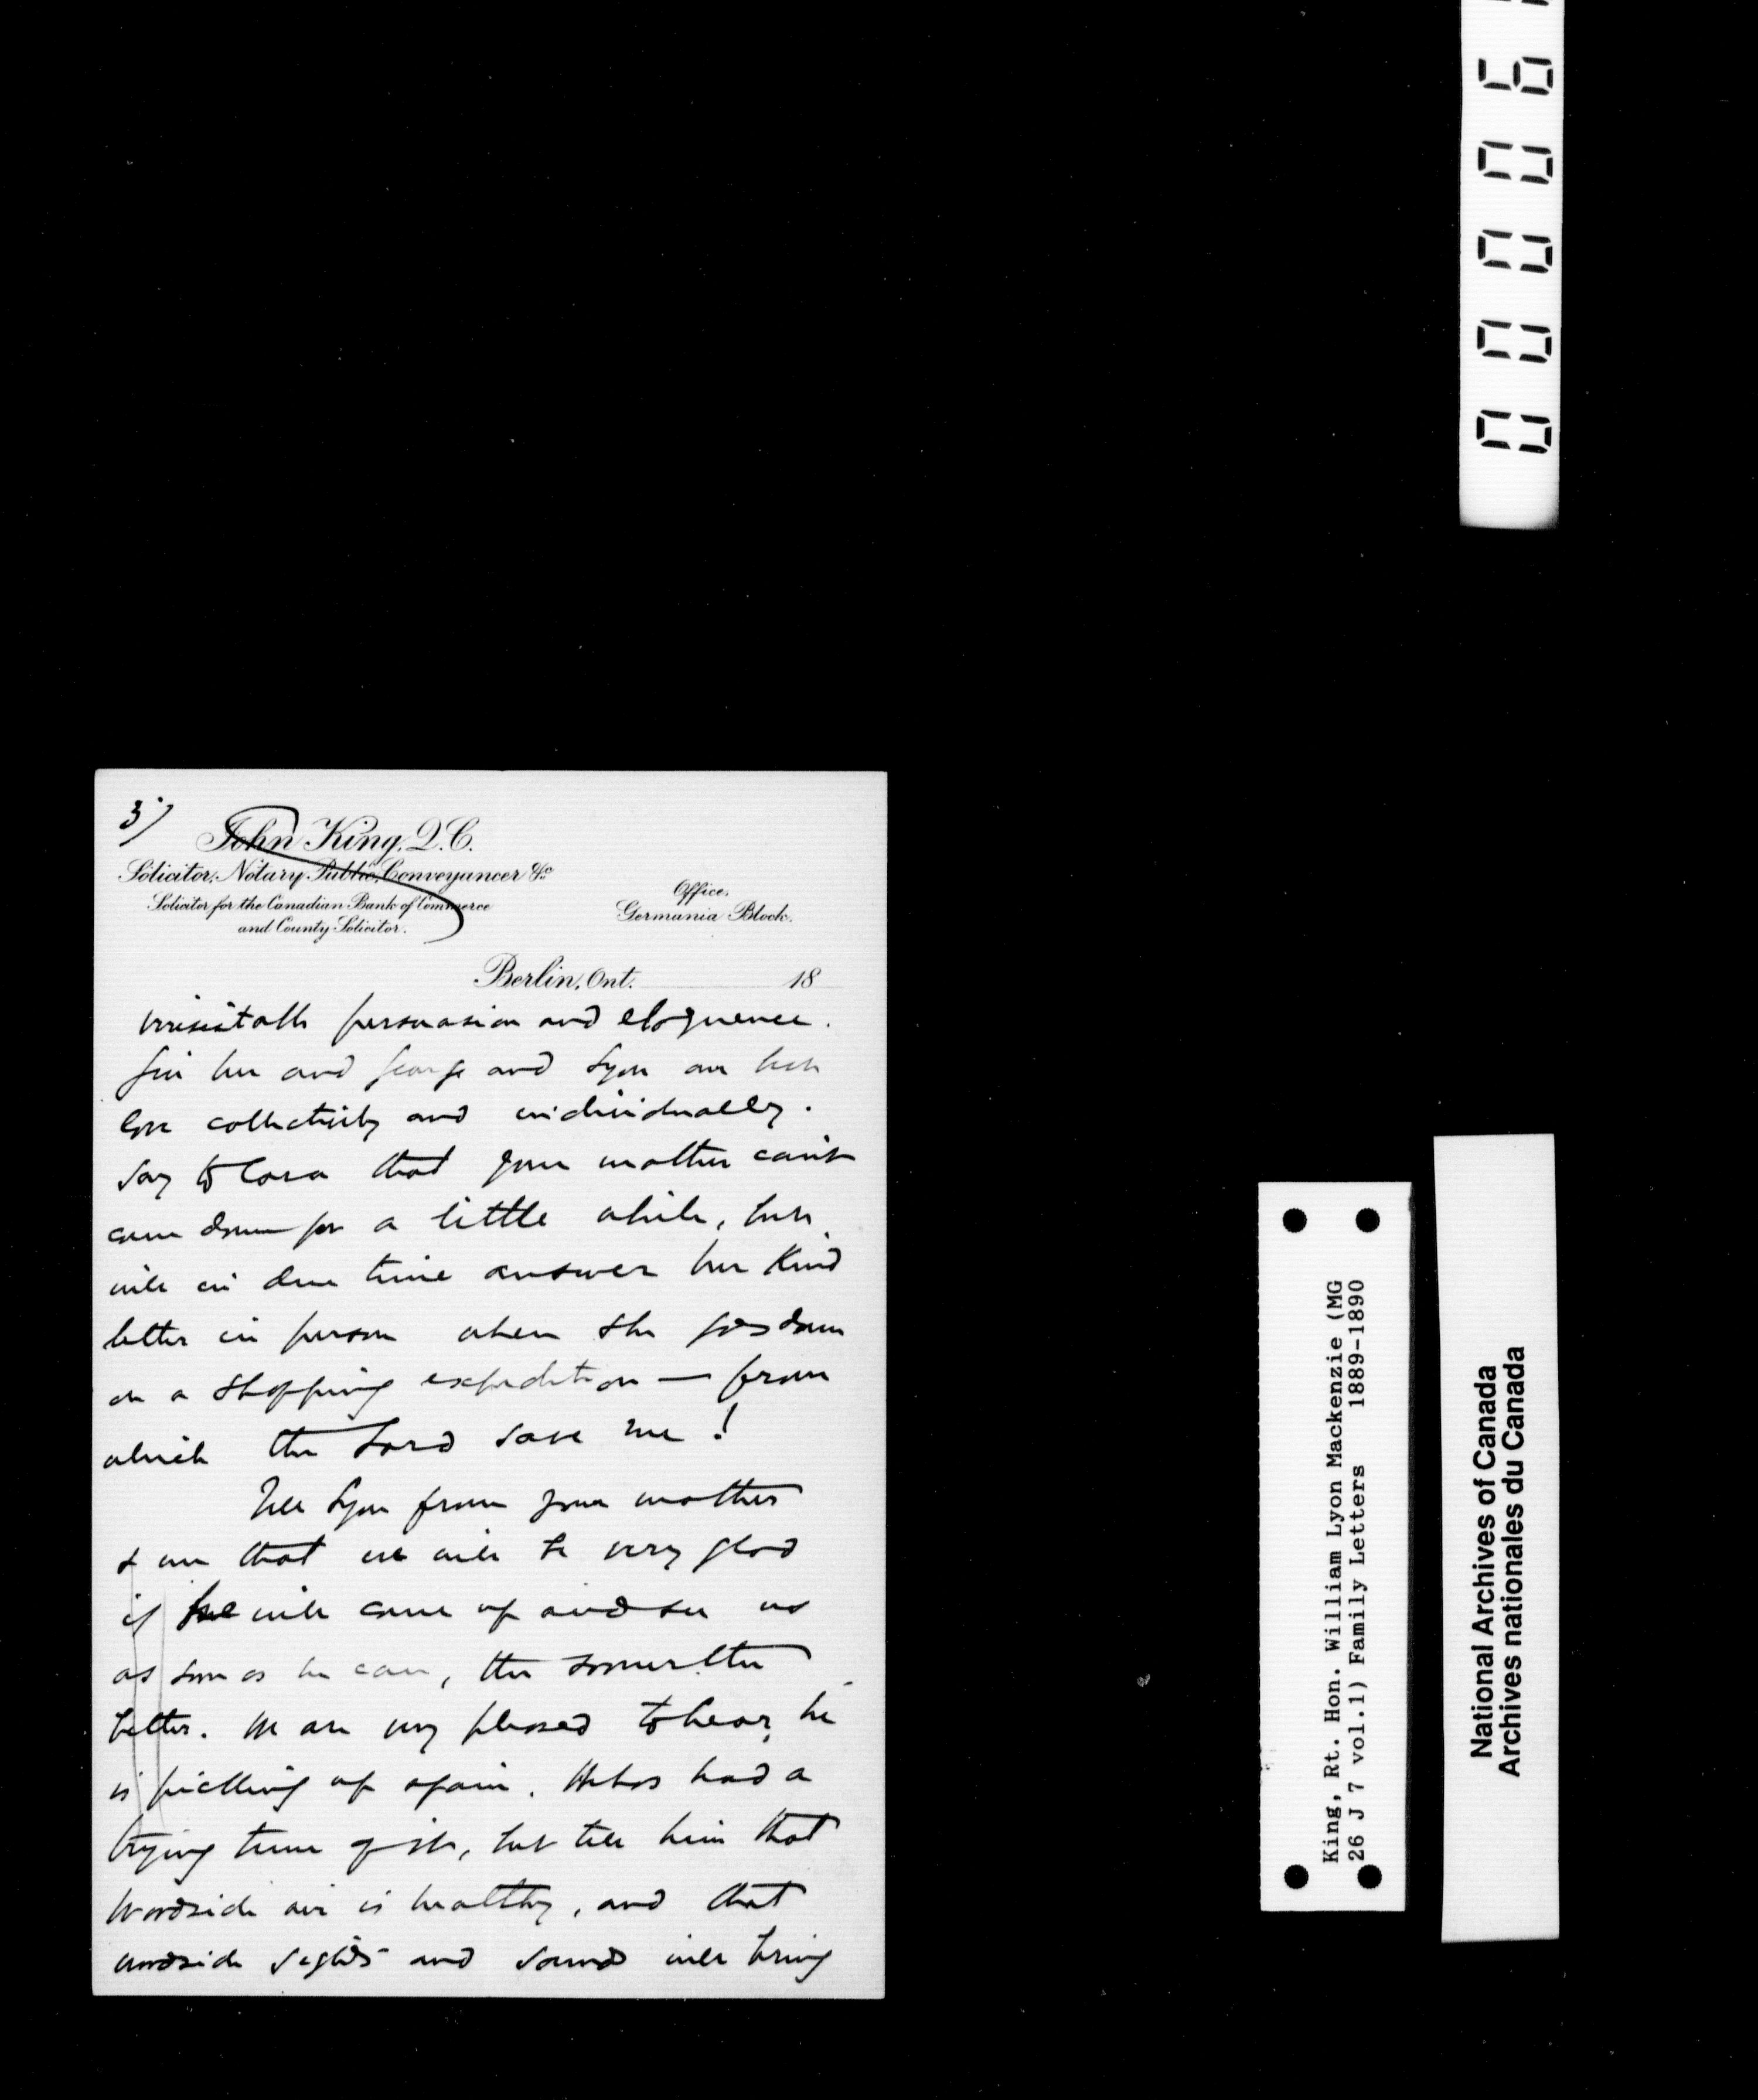 3/
John King, Q.C.
Solicitor, Notary Public, Conveyancer &c
Solicitor for the Canadian Bank of Commerce
and County Solicitor.
Office,
Germania Block.
Berlin, Ont. 18
irrisistable persuasion and eloquence.
Give her and George and Lyon our best
love collectively and individually.
Say to Cora that your mother can't
come down for a little while, but
will in due time answer her kind
letter in person when she goes down
on a shopping expedition — from
which the Lord save me!
Tell Lyon from your mother
& me that we will be very glad
if he will come up and see us
as soon as he can, the sooner the
better. We are very pleased to hear he
is picking up again. He has had a
trying time of it, but tell him that
Woodside air is healthy, and that
Woodside sights and sounds will bring
King, Rt. Hon. William Lyon Mackenzie (MG
26 J 7 vol.1) Family Letters 1889-1890
National Archives of Canada
Archives nationales du Canada